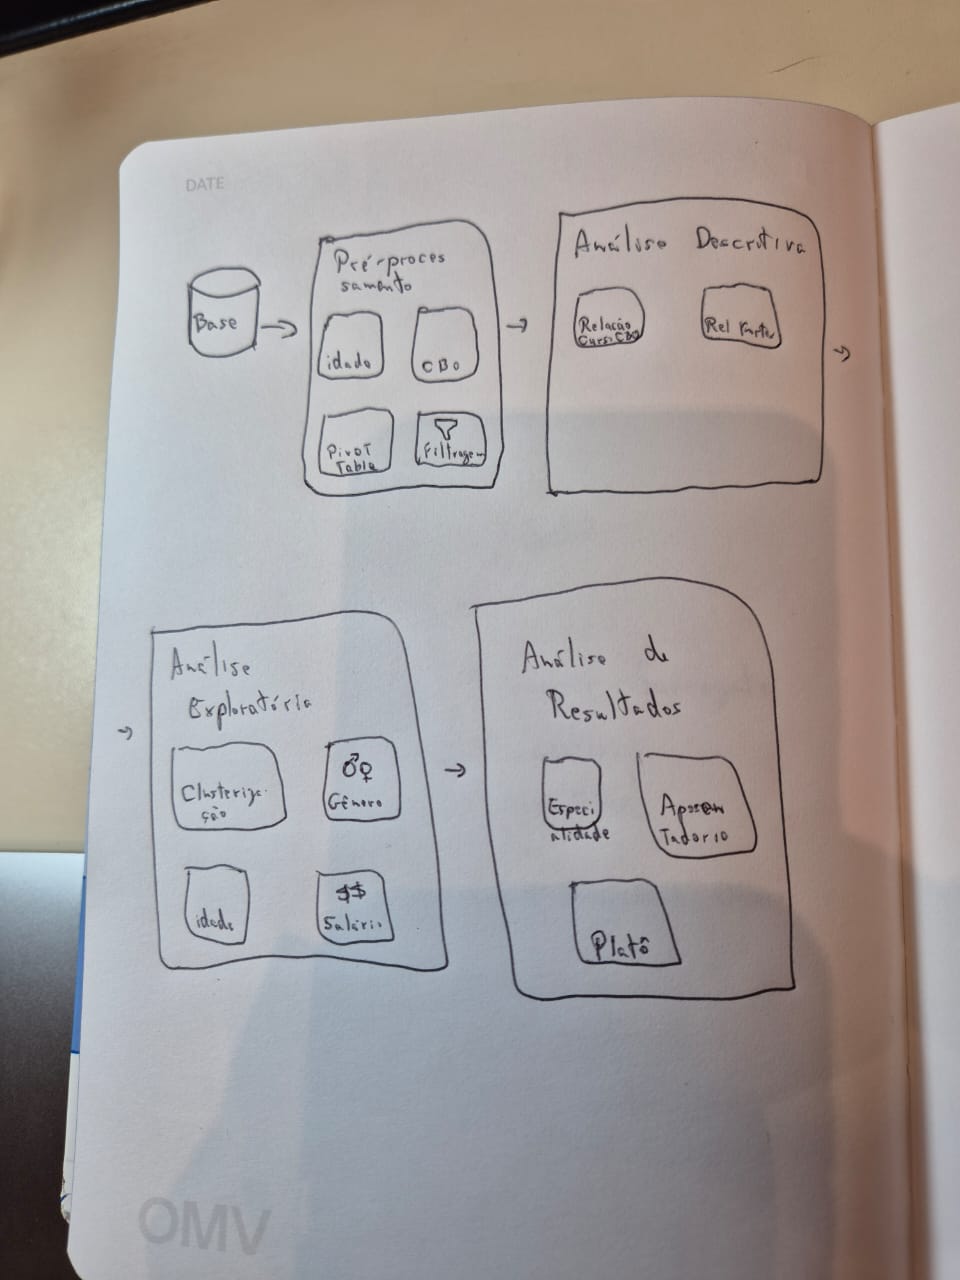 DATE
Base
Pré-proces
samento
idade
CBO
Pivot
Table
Filtragem
Análise Descritiva
Relação
Curso CBO
Rel
Análise
Exploratória
Clusteriza-
ção
Gênero
idade
$$
Salário
Análise de
Resultados
Especi
alidade
Aposen
Tadorio
Platô
OMV